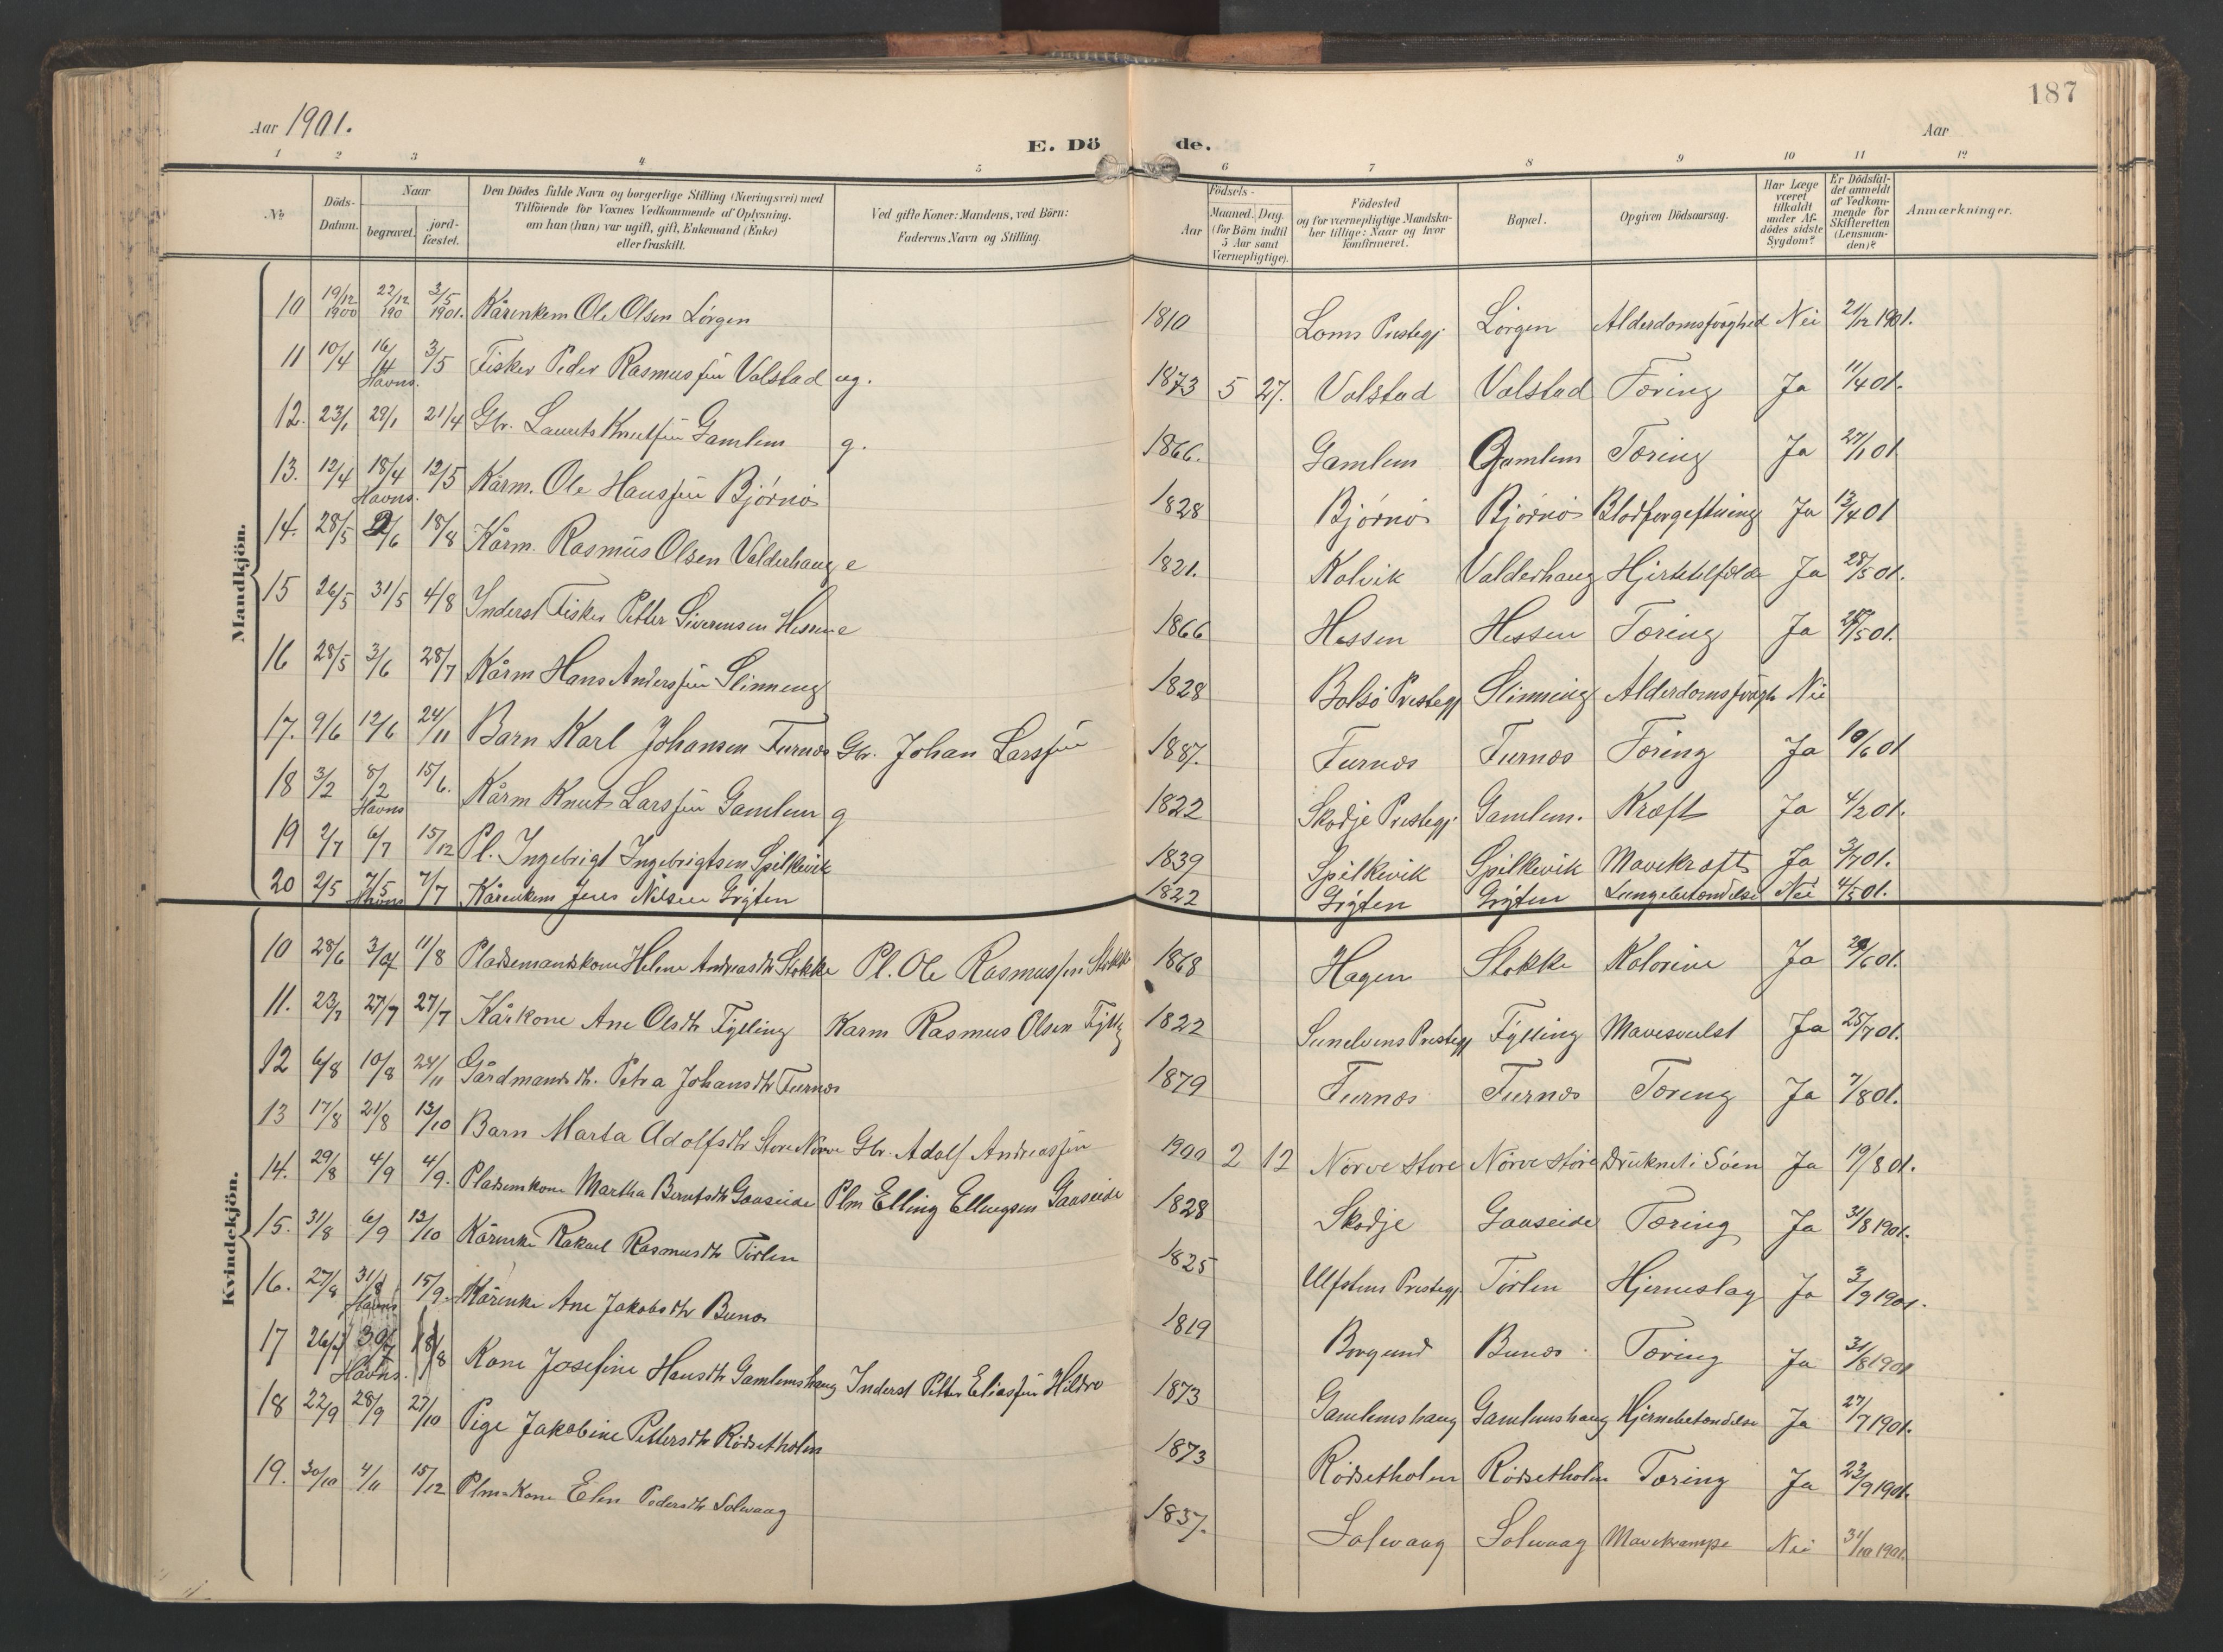 187
Aar 1901.
Aar
E. Dö de.
1 2 3 4 5 6 7 8 9 10 11 12
No
Döds-Datum.
Naar
begravet.
jord-fæstet.
Den Dödes fulde Navn og borgerlige Stilling (Næringsvei) med
Tilföiende for Voxnes Vedkommende af Oplysning,
om han (hun) var ugift, gift, Enkemand (Enke)
eller fraskilt.
Ved gifte Koner: Mandens, ved Börn:
Faderens Navn og Stilling.
Födsels-
Aar
Maaned. Dag.
(for Börn indtil
5 Aar samt
Værnepligtige).
Födested
og for værnepligtige Mandskaber tillige: Naar og hvor
konfirmeret.
Bopæl.
Opgiven Dödsaarsag.
Har Læge
været
tilkaldt
under Afdödes sidste
Sygdom?
Er Dödsfaldet anmeldt
af Vedkommende for
Skifteretten
(Lensmanden)?
Anmærkninger.
Mandkjön.
10 19/12 1900 22/12 190 3/5 1901. Kårenkem Ole Olsen Lørgen 1810 Loms Prestegj Lørgen Alderdomssvaghed Nei 21/12 1901.
11 10/4 16/4 Havns. 3/5 Fisker Peder Rasmussen Valstad ug. 1873 5 27. Valstad Valstad Tæring Ja 11/4 01.
12. 23/1 29/1 21/4 Gbr. Laurits Knutsen Gamlem g. 1866. Gamlem Gamlem Tæring Ja 27/1 01
13. 12/4 18/4 Havns. 12/5 Kårm. Ole Hanssen Bjørnø 1828 Bjørnø Bjørnø Blodforgiftning Ja 13/4 01
14. 28/5 2/6 18/8 Kårm. Rasmus Olsen Valderhaug e 1821. Kalvik Valderhaug Hjertetilfælde Ja 28/5 01.
15 26/5 31/5 4/8 Inderst Fisker Petter Siverensen Hessen e 1866 Hessen Hessen Tæring Ja /5 01.
16 28/5 3/6 28/7 Kårm Hans Anderssen Slinneng 1828 Bolsø Prestegj Slinning Alderdomssvagh Nei
17. 9/6 12/6 24/11 Barn Karl Johansen Furnæs Gbr. Johan Larssen 1887. Furnæs Furnæs Tæring Ja 10/6 01
18 3/2 8/2 Havns 15/6. Kårm Knut Larssen Gamlem g 1822 Skodje Prestegj. Gamlem. Kræft Ja 4/2 01.
19 2/7 6/7 15/12 Pl. Ingebrigt Ingebrigtsen Spilkevik 1839 Spilkevik Spilkevik Mavekræft Ja 3/7 01.
20 2/5 7/5 Havns 7/7 Kårenkem Jens Nilsen Grÿten 1822 Grÿten Grÿten Lungebetændelse Nei 4/5 01.
Kvindekjön.
10 28/6 3/7 11/8 Pladsemandskone Helene Andreasdtr Stokke Pl. Ole Rasmussen Stokke 1868 Hagen Stokke Kolerine Ja /6 01.
11. 23/7 27/7 27/7 Kårkone Ane Olsdtr Fylling Karm Rasmus Olsen Fyllg 1822 Sunelvens Prestegj Fylling Mavesvulst Ja 25/7 01.
12 6/8 10/8 24/11 Gårdmandsdtr. Petra Johansdtr Furnæs 1879 Furnæs Furnæs Tæring Ja 7/8 01.
13 17/8 21/8 13/10 Barn Marta Adolfsdtr Store Nørve Gbr. Adolf Andreassen 1900 2 12 Nørve store Nørve store Druknet i Söen Ja 19/8 01.
14. 29/8 4/9 4/9. Pladsemkone Martha Berntsdtr Gaaseide Plm Elling Ellingsen Gaaseide 1828 Skodje Gaaseide Tæring Ja 31/8 1901.
15. 31/8 6/9 13/10 Kårenke Rakael Rasmusdtr Tørlen 1825 Ulfstens Prestegj. Tørlen Hjerneslag Ja 3/9 1901.
16. 27/8 31/8 Havns 15/9. Kårenke Ane Jakobsdtr Bunæs 1819 Borgund Bunæs Tæring Ja 31/8 1901
17 26/7 30/7 Havns. 18/8 Kone Josefine Hansdtr Gamlemshaug Inderst Petter Eliassen Hildre 1873 Gamlemshaug Gamlemshaug Hjernebetændelse Ja 27/7 1901.
18 22/9 28/9 27/10 Pige Jakobine Pettersdtr Rödsetholm 1873 Rödsetholm Rödsetholm Tæring Ja 23/9 1901.
19. 30/10 4/11 15/12 Plm=Kone Elen Pedersdtr Solevaag 1837. Solevaag Solevaag Mavekrampe Nei 31/10 1901.